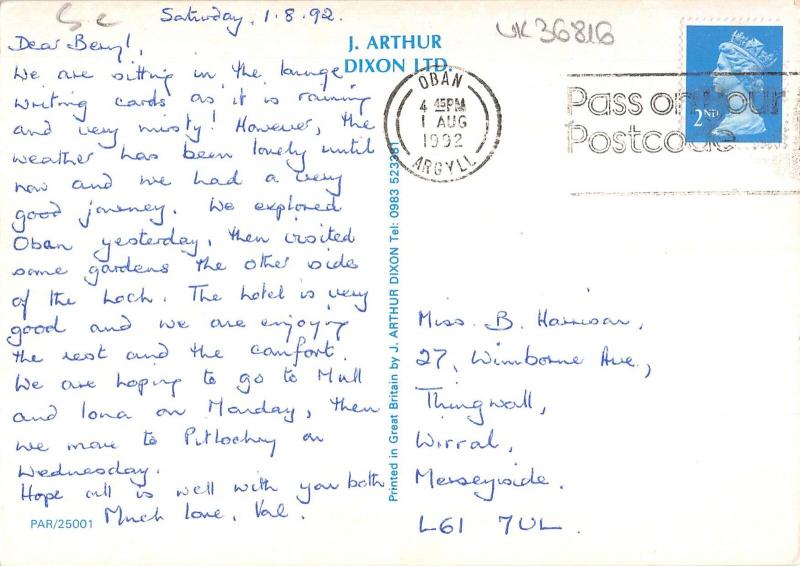 Sc
Saturday, 1.8.92.
UK36816
Dear Beryl,
We are sitting in the lounge
writing cards as it is raining
and very misty! However, the
weather has been lovely until
now and we had a very
good journey. We explored
Oban yesterday, then visited
some gardens the other side
of the loch. The hotel is very
good and we are enjoying
the rest and the comfort.
We are hoping to go to Mull
and Iona on Monday, then
we move to Pitlochry on
Wednesday.
Hope all is well with you both
Much love, Val.
PAR/25001
J. ARTHUR
DIXON LTD.
Printed in Great Britain by J. ARTHUR DIXON Tel: 0983 523381
OBAN
4 45PM
1 AUG
1992
ARGYLL
Pass on your
Postcode
2ND
Miss. B. Harrison,
27, Wimborne Ave.,
Thingwall,
Wirral,
Merseyside.
L61 7UL.